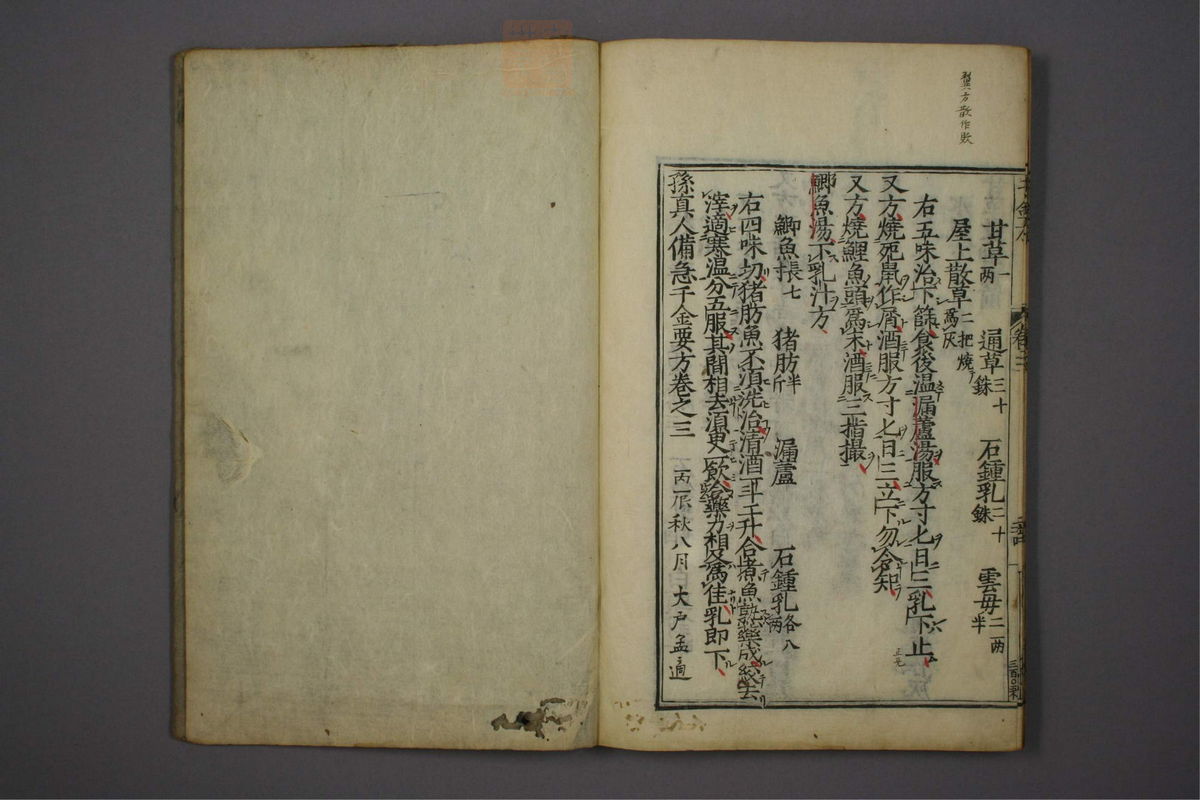 翼方散作敗
甘草一両 通草三十銖 石鍾乳二十銖 雲母二両半
屋上散草二把燒為灰
右五味治下篩食後温漏蘆湯服方寸匕日三乳下止
又方燒死鼠作屑酒服方寸匕日三立下勿令知
又方燒鯉魚頭為末酒服三指撮
鯽魚湯下乳汁方
鯽魚長七 猪肪半斤 漏蘆 石鍾乳各八両
右四味切猪肪魚不須洗治清酒一斗二升合煮魚熟藥成絞去
滓適寒温分五服其間相去須臾一飲令藥力相及為佳乳即下
孫真人備急千金要方卷之三 丙辰秋八月 大戸孟適